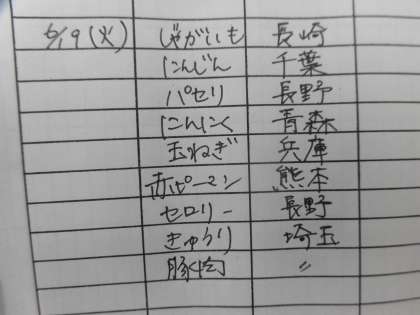 6/19(火) じゃがいも 長崎
にんじん 千葉
パセリ 長野
にんにく 青森
玉ねぎ 兵庫
赤ピーマン 熊本
セロリー 長野
きゅうり 埼玉
豚肉 〃